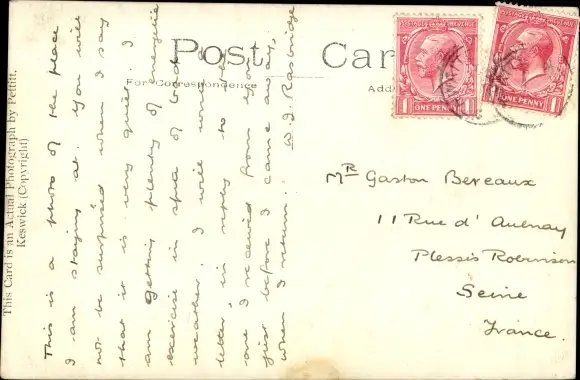 Post Card
For Correspondence
Add
POSTAGE REVENUE
ONE PENNY
POSTAGE REVENUE
ONE PENNY
This Card is an Actual Photograph by Pettitt.
Keswick (Copyright)
This is a photo of the place
I am staying at. You will
not be surprised when I say
that it is very quiet. I
am getting plenty of energetic
exercise in spite of bad
weather. I will write a
letter, in reply to the
one I received from you
just before I came away,
when I return. W J Rasbridge
Mr Gaston Bereaux
11 Rue d' Aulnay
Plessis Robinson
Seine
France.